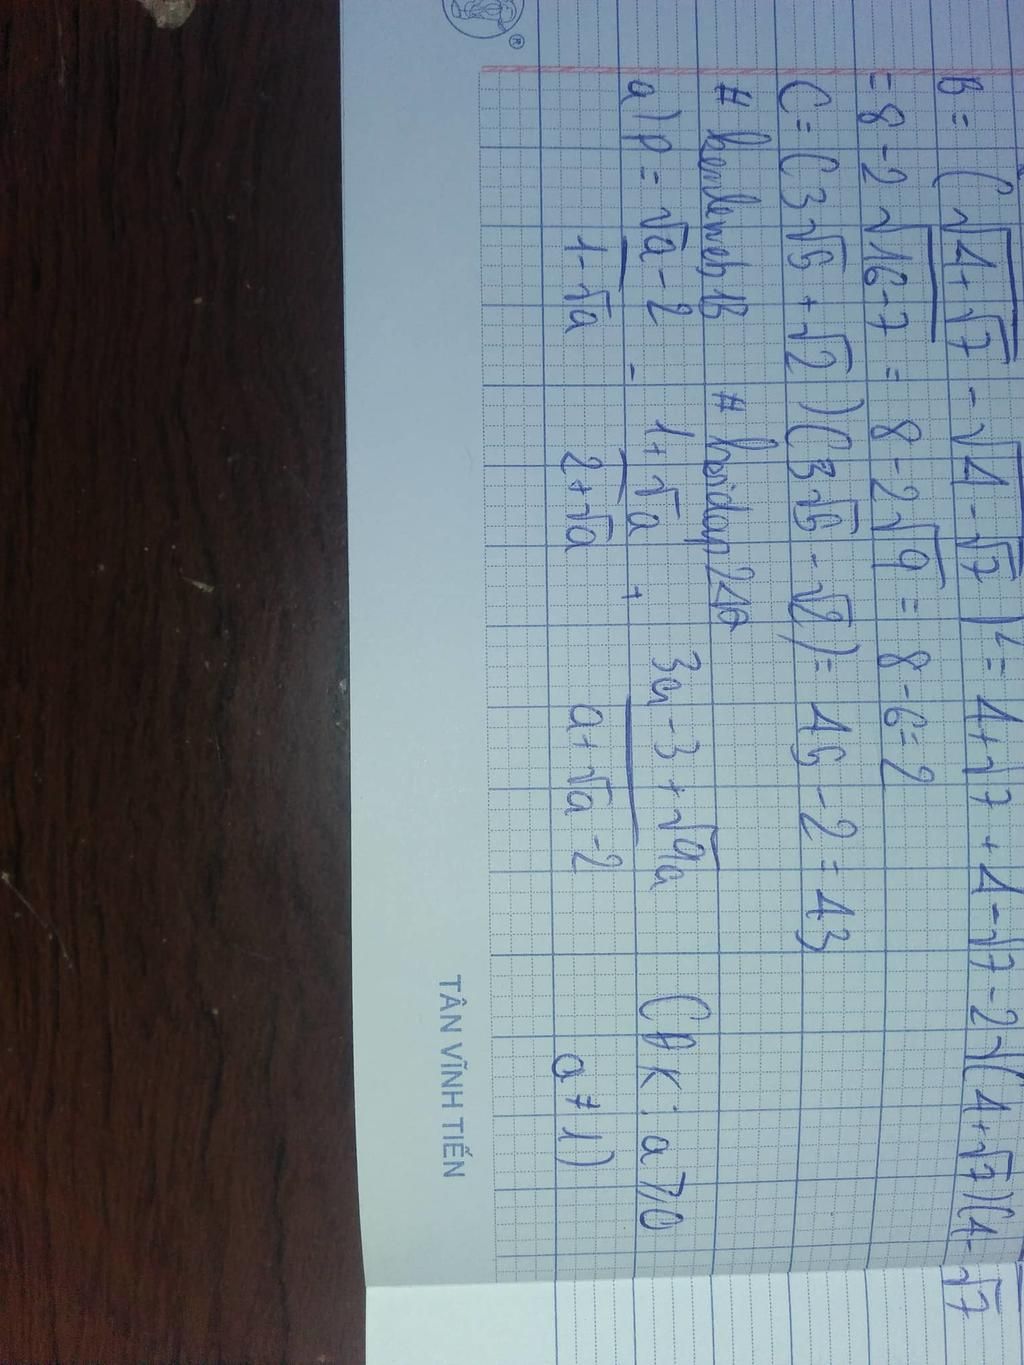 B = (√(4+√7) - √(4-√7))² = 4+√7 + 4-√7 - 2√(4+√7)(4-√7
= 8 - 2√(16-7) = 8 - 2√9 = 8 - 6 = 2
C = (3√5 + √2)(3√5 - √2) = 45 - 2 = 43
# kenleweb1B # hoidap247
a) P = (√a - 2)/(1-√a) - (1+√a)/(2+√a) + (3a-3+√9a)/(a+√a-2) (ĐK: a ≥ 0
a ≠ 1)
TÂN VĨNH TIẾN
®